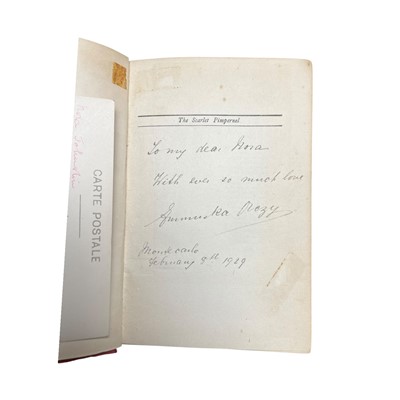 The Scarlet Pimpernel
To my dear Nora
With ever so much love
Emmuska Orczy
Monte Carlo
February 5th 1929
CARTE POSTALE